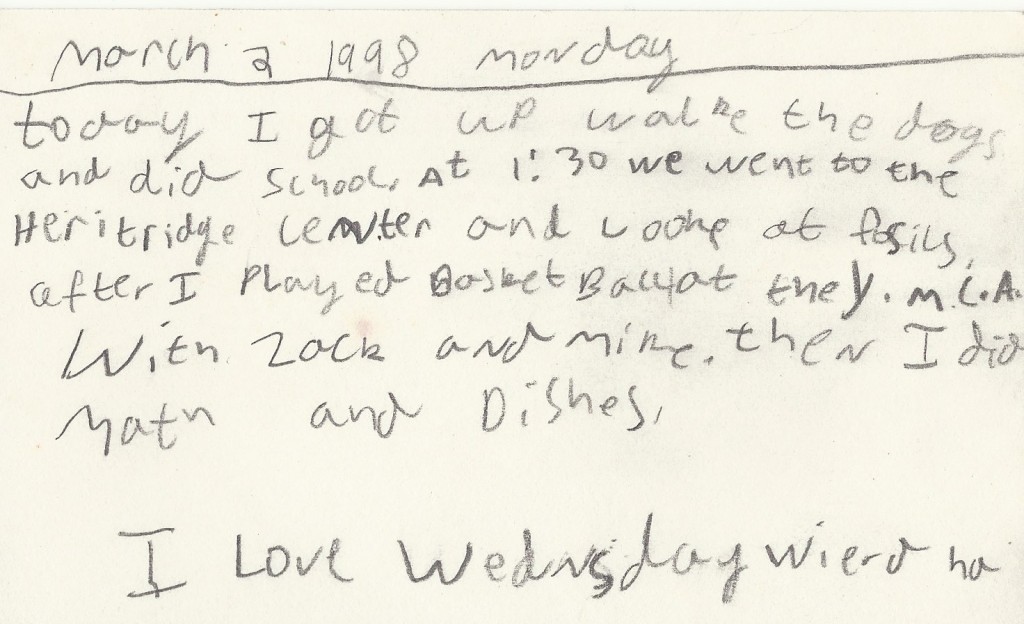 March 2 1998 monday
today I got uP walke the dogs
and did School. At 1:30 we went to the
Heritridge Center and Looke at fosils,
after I Played BasketBall at the Y.M.C.A.
With Zack and mike. then I did
Math and Dishes,
I Love Wednsday wierd ha